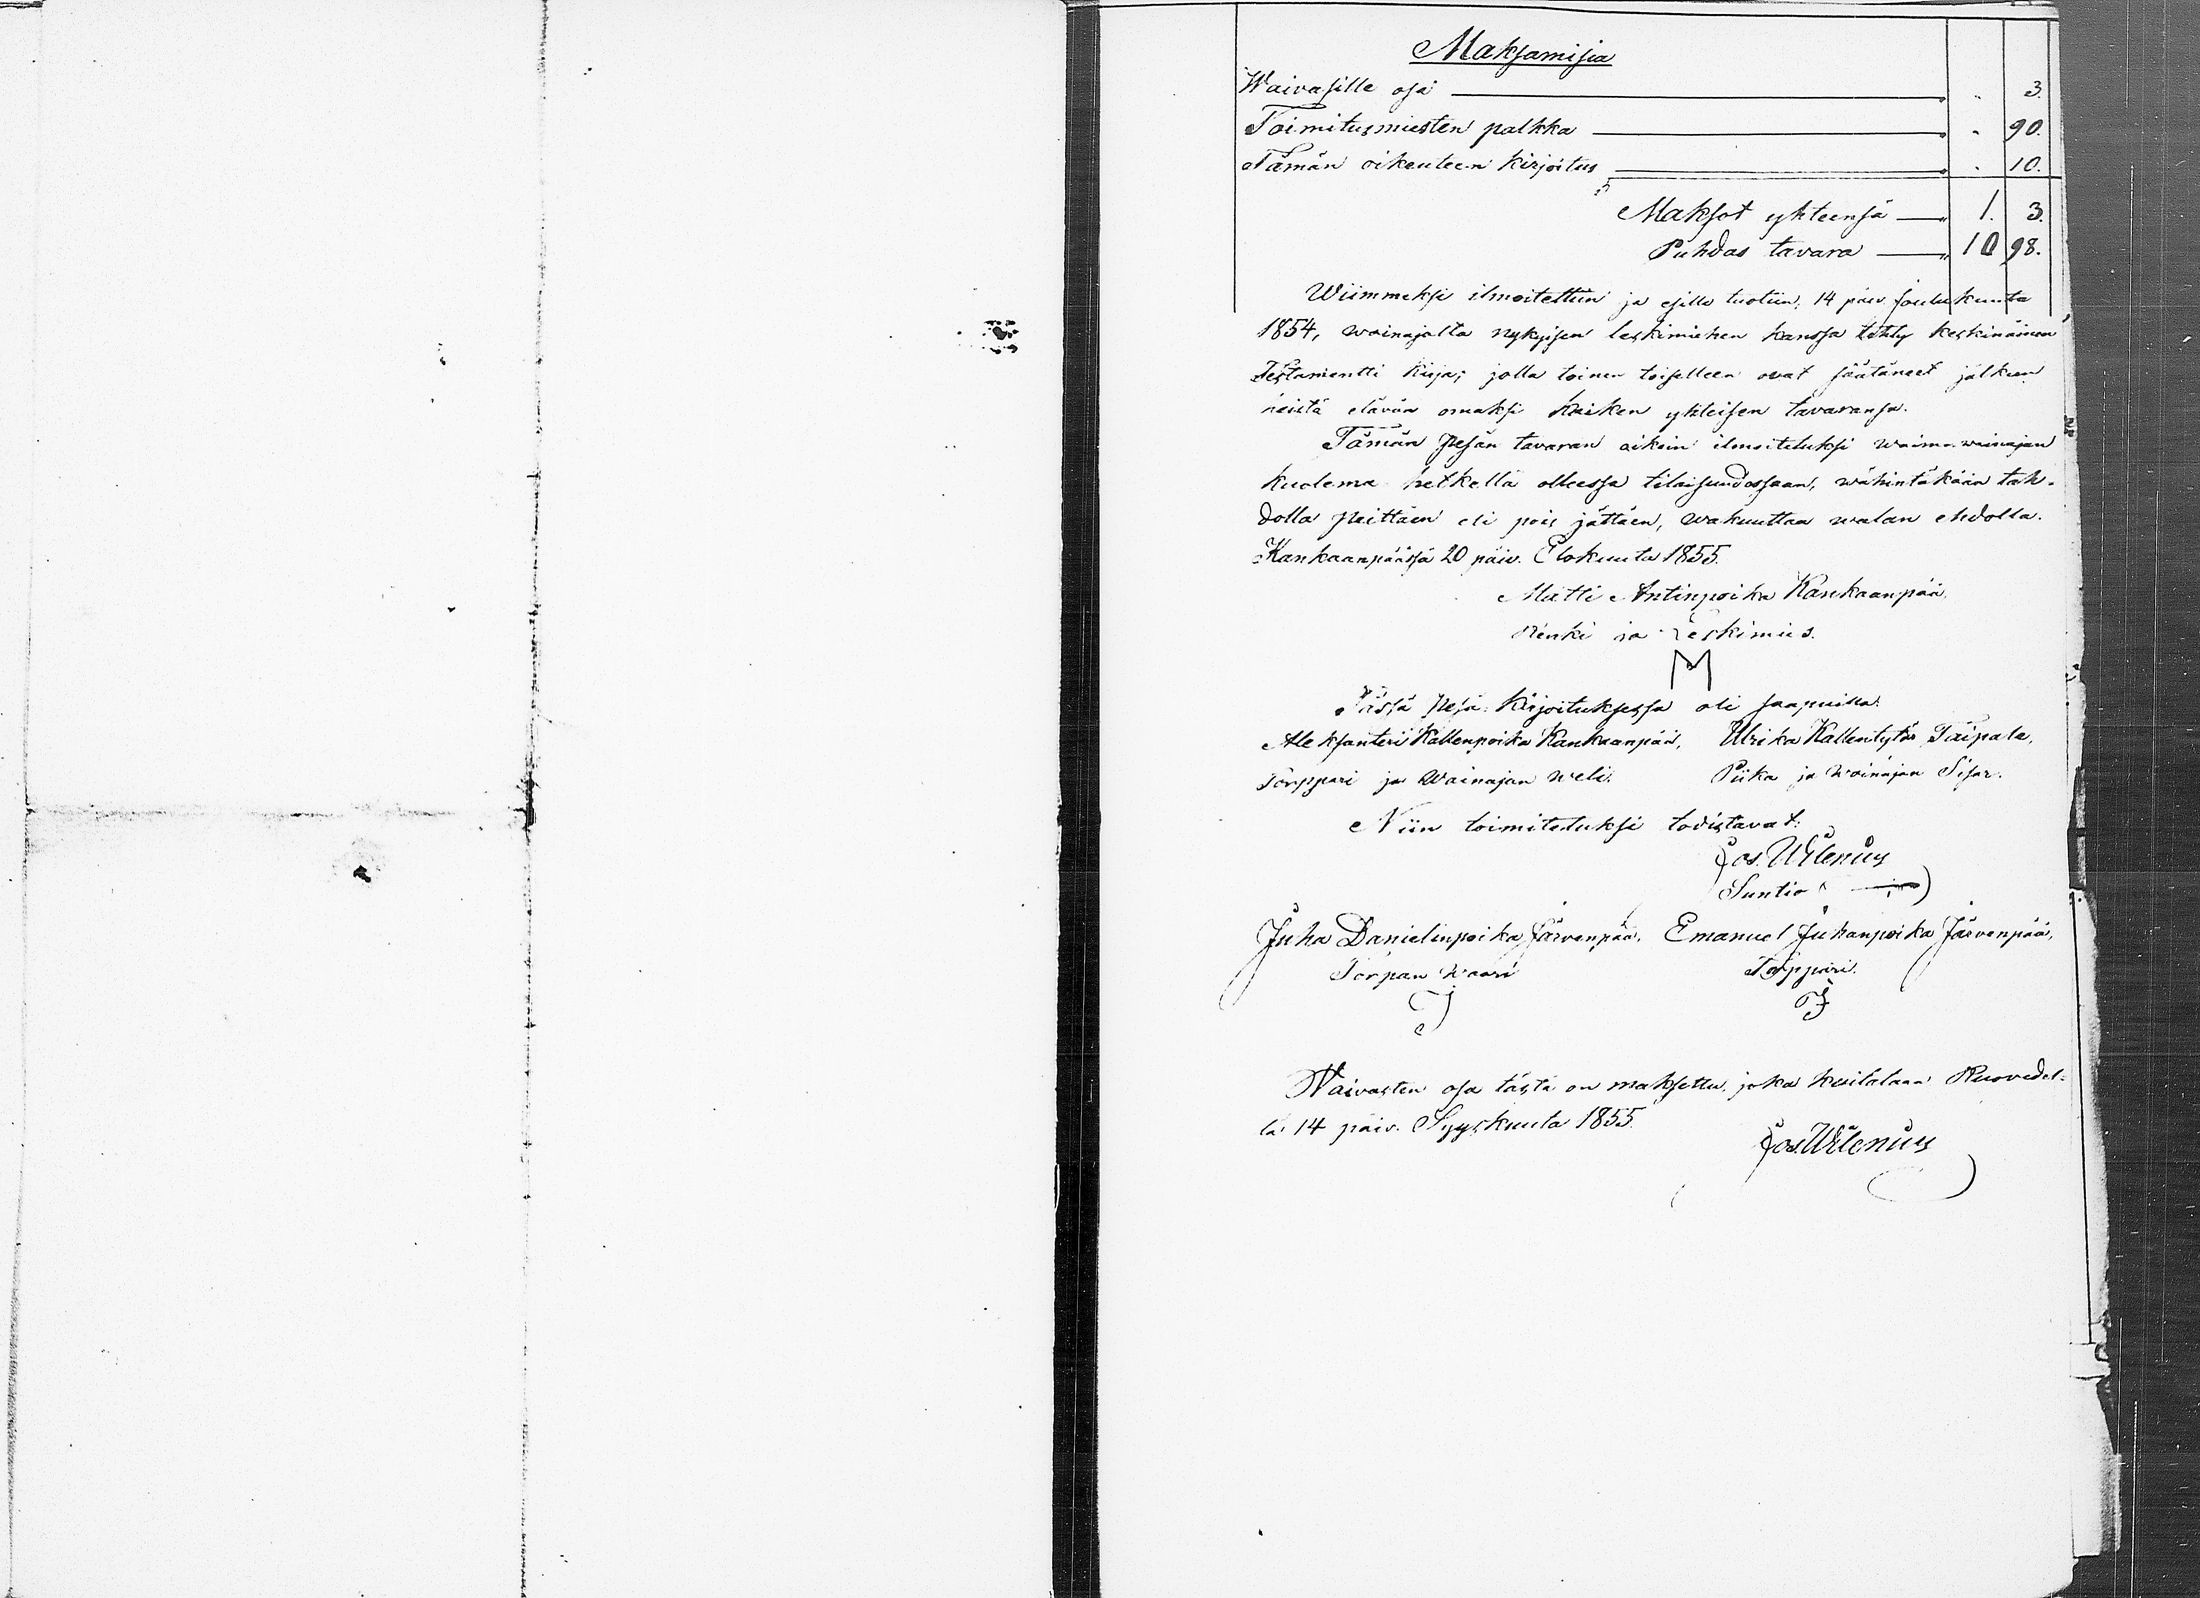 Maksamisia
Waivasille osa " " 3.
Toimitusmiesten palkka " " 90.
Tämän oikeuteen kirjoitus " " 10.
Maksot yhteensä " 1. 3.
Puhdas tavara " 10 98.
Wiimmeksi ilmoitettiin ja esille tuotiin, 14 päiv. Joulukuuta
1854, wainajalta nykyisen leskimiehen kanssa tehty keskinäinen
Testamentti kirja; jolla toinen toiselleen ovat säätäneet jälkeen
heistä elävän omaksi kaiken yhteisen tavaransa.
Tämän pesän tavaran oikein ilmoitetuksi waimo-wainajan
kuolema hetkellä olleessa tilaisuudossaan, wähintäkään tah-
dolla peittäen eli pois jättäen, wakuuttaa walan ehdolla.
Kankaanpäässä 20 päiv. Elokuuta 1855.
Matti Antinpoika Kankaanpää,
Renki ja Leskimies.
M
Tässä pesä-kirjoituksessa oli saapuilla:
Aleksanteri Kallenpoika Kankaanpää, Ulrika Kallentytär Taipale,
Torppari ja Wainajan weli. Piika ja Wainajan Sisar.
Niin toimitetuksi todistavat:
Jos. Wilenius
Suntio
Juha Danielinpoika Järvenpää, Emanuel Juhanpoika Järvenpää,
Torpan waari Torppari.
J
Waivasten osa tästä on maksettu, joka kuitataan Ruovedel-
lä 14 päiv. Syyskuuta 1855.
Jos. Wilenius